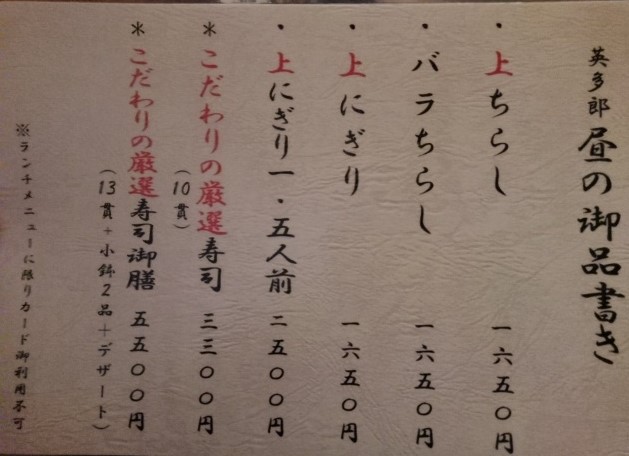 英多郎 昼の御品書き
・上ちらし 一六五〇円
・バラちらし 一六五〇円
・上にぎり 一六五〇円
・上にぎり一・五人前 二五〇〇円
＊こだわりの厳選寿司 三三〇〇円
（10貫）
＊こだわりの厳選寿司御膳 五五〇〇円
（13貫+小鉢2品+デザート）
※ランチメニューに限りカード御利用不可